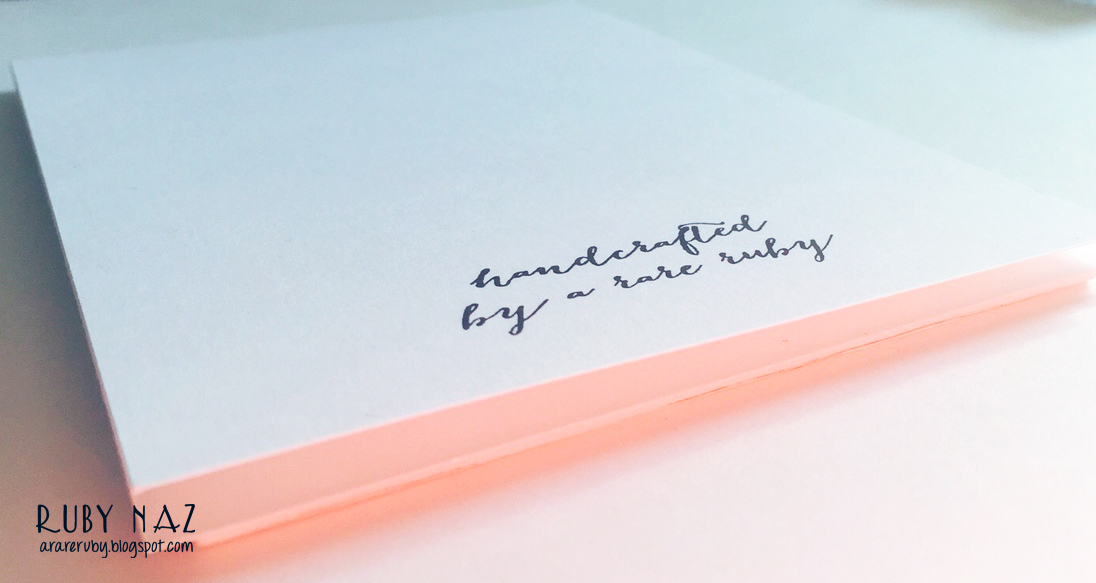 handcrafted
by a rare ruby
RUBY NAZ
arareruby.blogspot.com